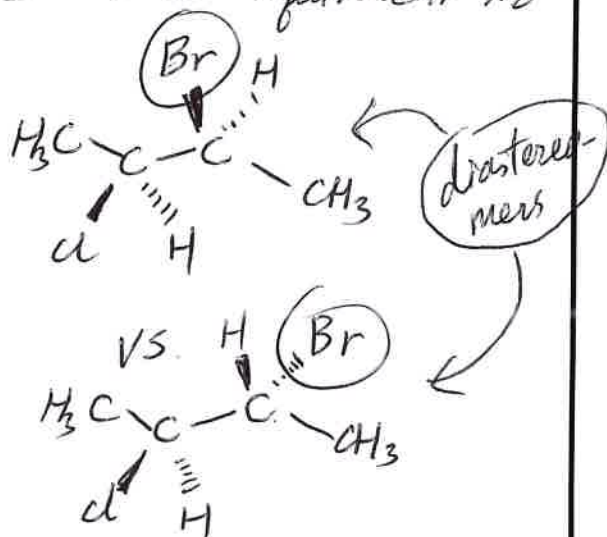 Br H
H₃C C C
CH₃
Cl H
diastereo-
mers
VS. H Br
H₃C C C
CH₃
Cl H